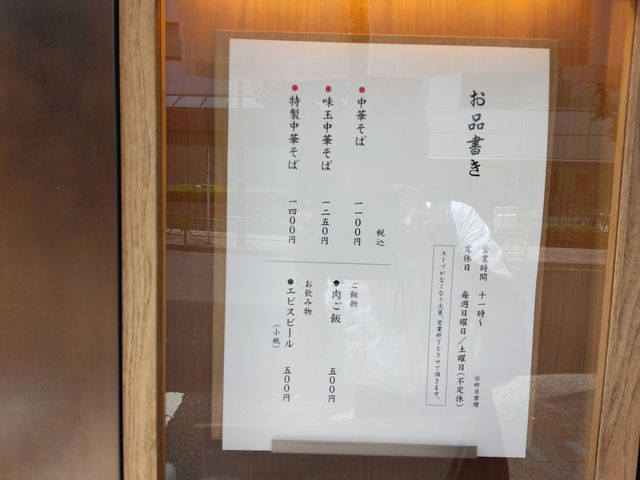 お品書き
営業時間 十一時〜
定休日 毎週日曜日／土曜日(不定休)
※終日禁煙
スープがなくなり次第、営業終了とさせて頂きます。
税込
●中華そば 一一〇〇円
●味玉中華そば 一二五〇円
●特製中華そば 一四〇〇円
ご飯物
●肉ご飯 五〇〇円
お飲み物
●エビスビール(小瓶) 五〇〇円